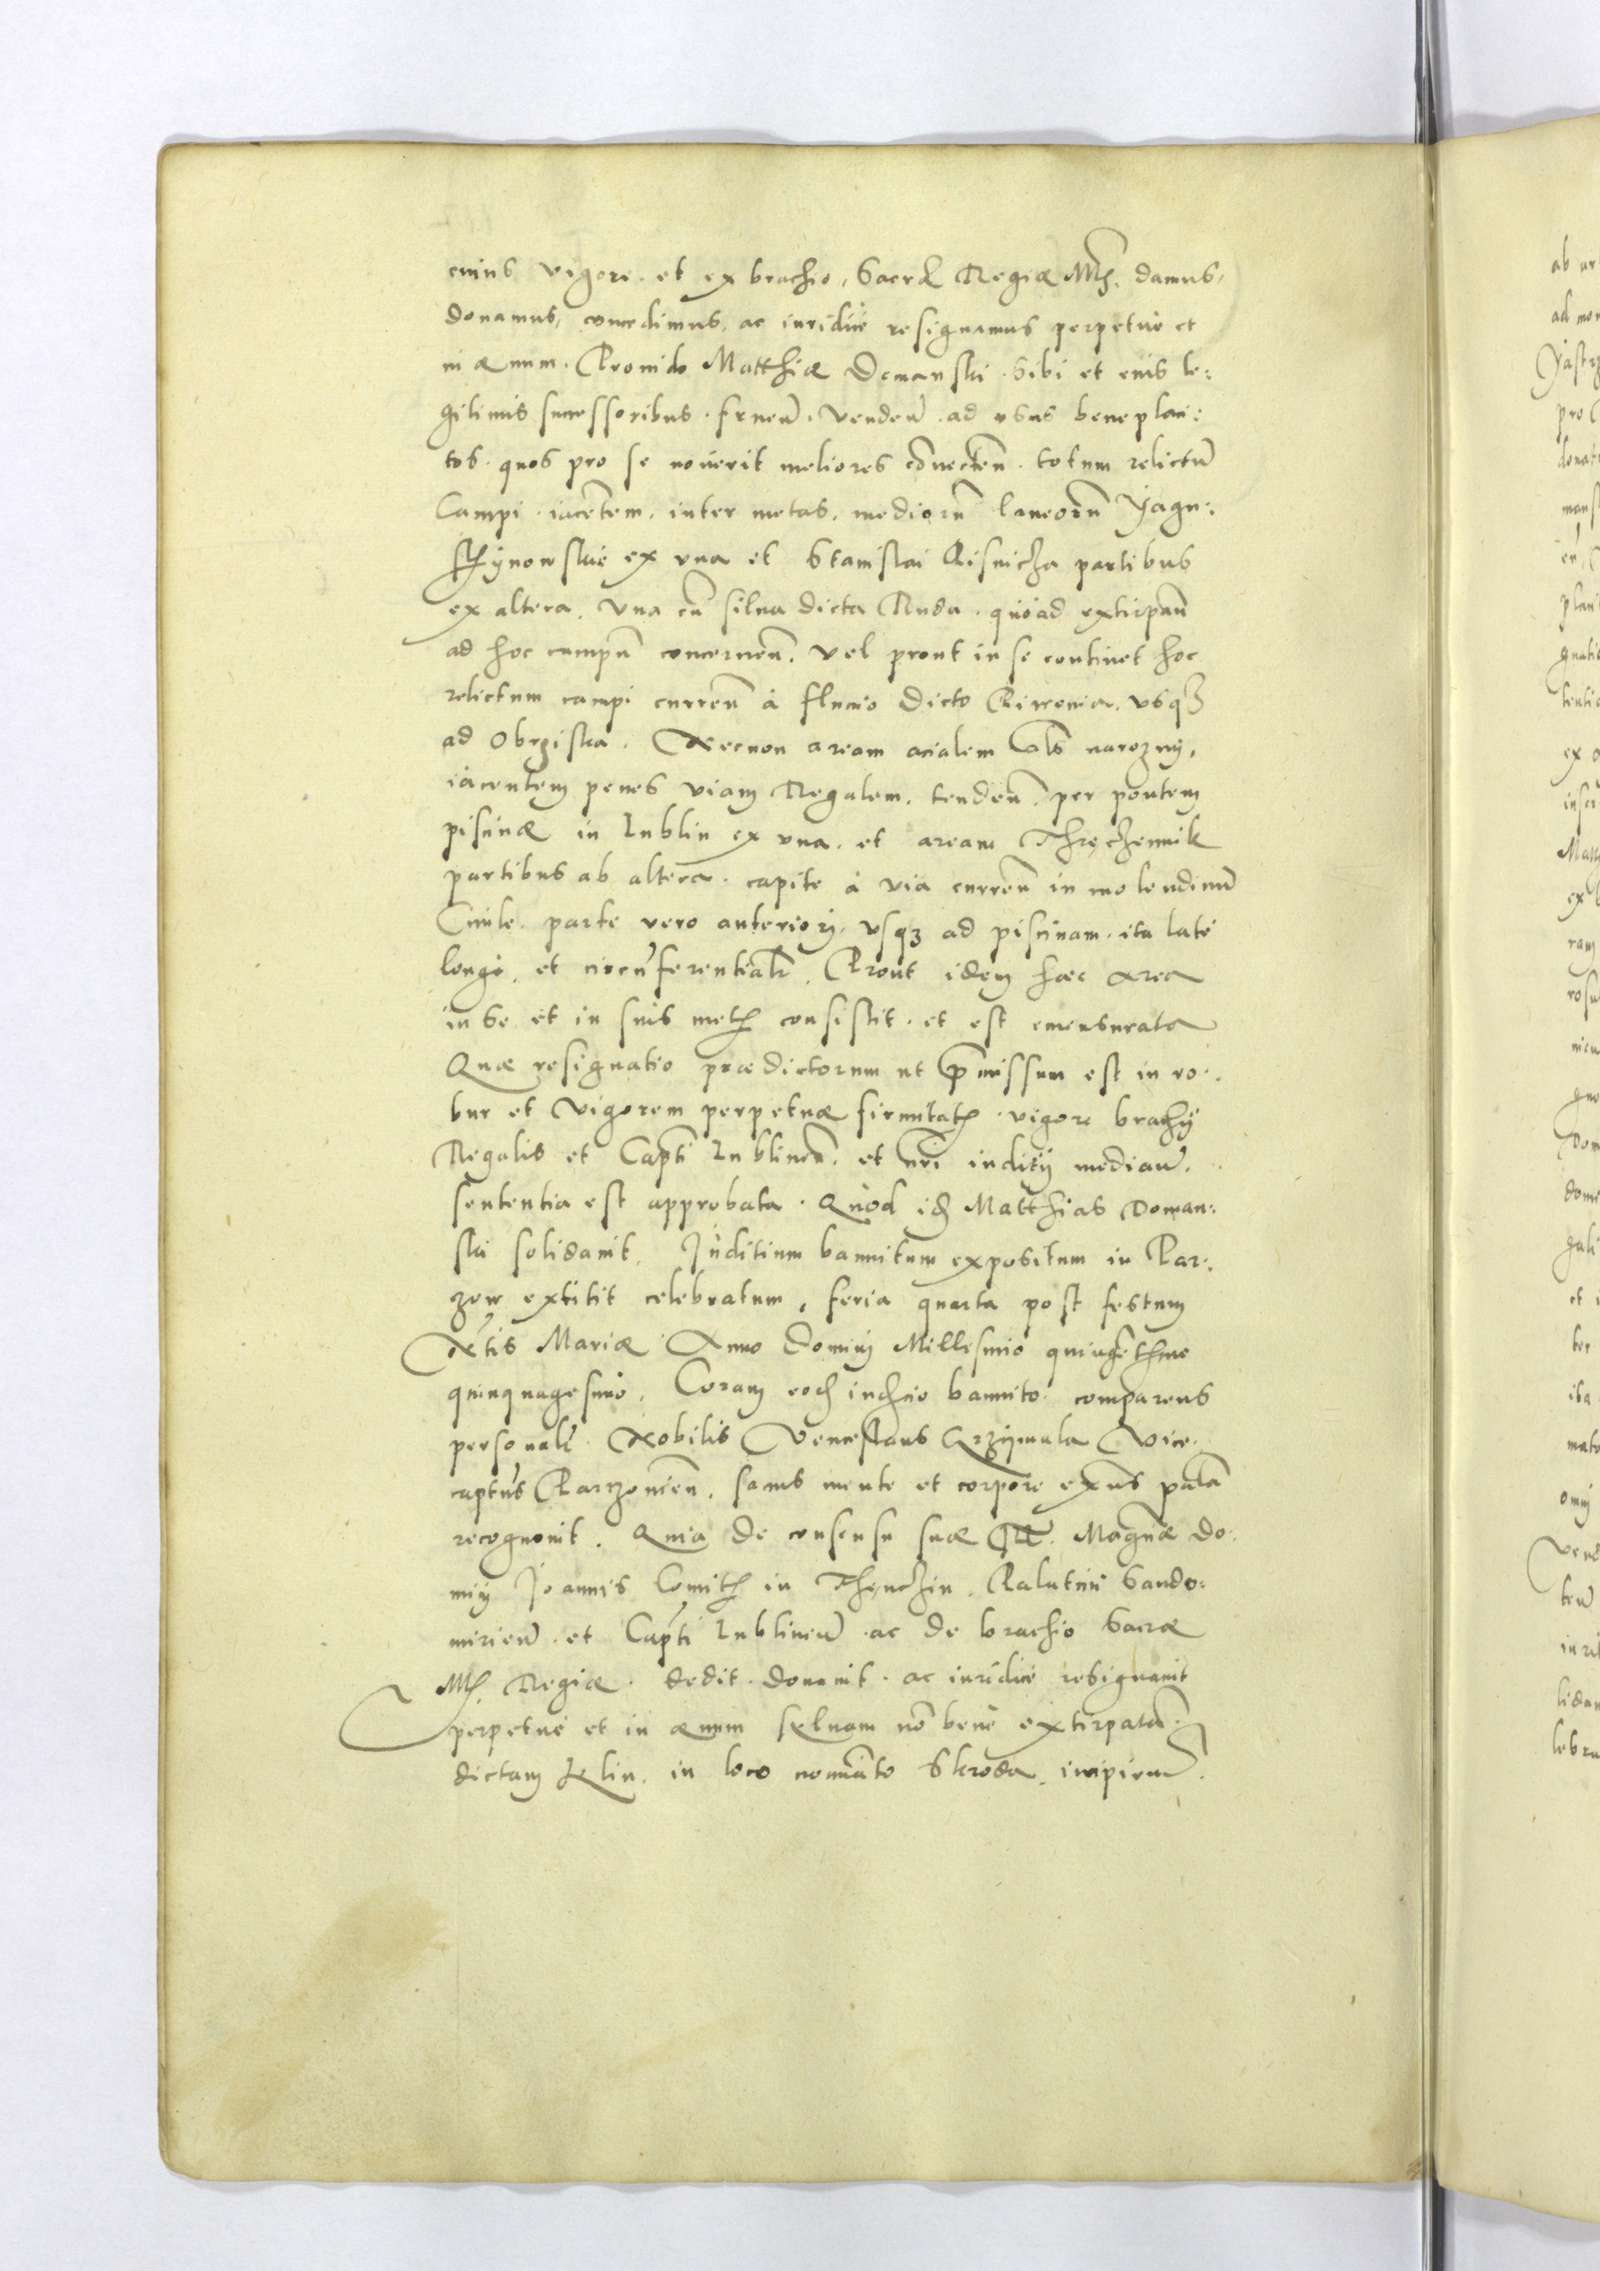 cuius vigore et ex brachio, Sacræ Regiæ Mtis. damus,
donamus, concedimus, ac iuridice resignamus perpetue et
in æuum. Prouido Matthiæ Domanski sibi et eius le:
gitimis successoribus. vendeñ. ad vsus beneplaci:
tos. quos pro se nouerit meliores totum relictũ
Campi iacẽtem, inter metas, mediorũ laneorũ Yagn:
ex vna et Stanislai Pisnicha partibus
ex altera, Vna cũ silua dicta Ruda. quoad extirpañ
ad hoc campũ concerneñ, vel prout in se continet hoc
relictum campi curreñ à fluuio dicto vsq3
ad Obrziska. Necnon aream acialem als narozny,
iacentem penes viam Regalem, tendeñ. per pontem
piscinæ in Lublin ex vna. et aream Threchennik
partibus ab altera. capite à via curreñ in molendinũ
Ciuile. parte vero anteriori, vsq3 ad piscinam. ita late
longe, et circũferentialr. Prout idem hæc area
in se et in suis metis consistit. et est emensurata
Quæ resignatio prædictorum ut p̃missum est in ro:
bur et vigorem perpetuæ firmitatis. vigore brachÿ
Regalis et Capti Lublineñ. et nri inditÿ mediañ.
sententia est approbata. Quod id Matthias Doman:
ski solidauit. Juditium bannitum expositum in Par:
zow extitit celebratum, feria quarta post festum
Ntis Mariæ Anno Domini Millesimo
quinquagesimo. Coram eod indicio bannito. comparens
personalr. Nobilis Venceslaus Grzymala Vice:
captus Parczouieñ. sanus mente et corpore exñs palã
recognouit. Quia de consensu suæ M. Magnæ do:
mini Joannis Comitis in Thenchin. Palatini Sando:
mirieñ. et Capti Lublineñ. ac de brachio Sacræ
Mtis. Regiæ. dedit. donauit. ac iuridice resignauit
perpetue et in æuum syluam nõ bene extirpatã
dictam in loco nominato Skroda, incipieñ.